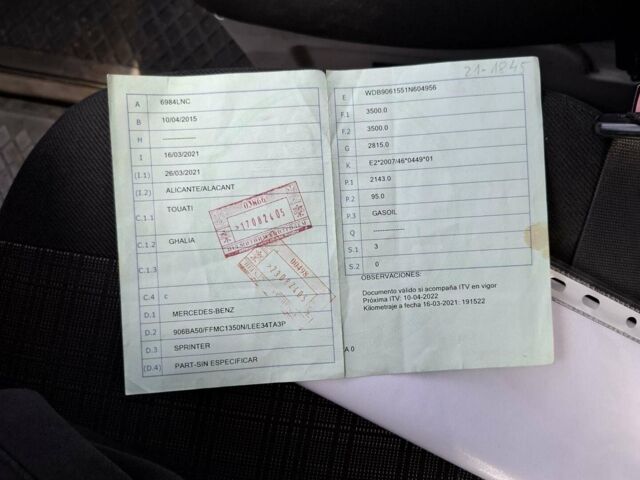 A 6984LNC
B 10/04/2015
H ------------
I 16/03/2021
(I.1) 26/03/2021
(I.2) ALICANTE/ALACANT
C.1.1 TOUATI
C.1.2 GHALIA
C.1.3
C.4 c
D.1 MERCEDES-BENZ
D.2 906BA50/FFMC1350N/LEE34TA3P
D.3 SPRINTER
(D.4) PART-SIN ESPECIFICAR
21-1845
E WDB9061551N604956
F.1 3500.0
F.2 3500.0
G 2815.0
K E2*2007/46*0449*01
P.1 2143.0
P.2 95.0
P.3 GASOIL
Q ------------
S.1 3
S.2 0
OBSERVACIONES:
Documento válido si acompaña ITV en vigor
Próxima ITV: 10-04-2022
Kilometraje a fecha 16-03-2021: 191522
A 0